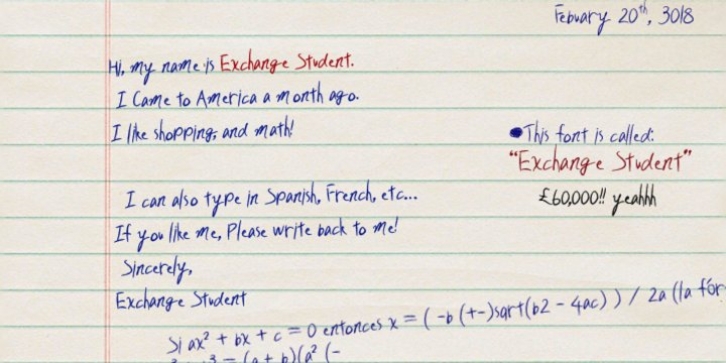 Febuary 20th, 3018
Hi, my name is Exchange Student.
I Came to America a month ago.
I like shopping, and math!
•This font is called:
"Exchange Student"
£60,000!! yeahhh
I can also type in Spanish, French, etc...
If you like me, Please write back to me!
Sincerely,
Exchange Student
Si ax² + bx + c = 0 entonces x = ( -b (+-)sqrt(b2 - 4ac) ) / 2a (la for
= (a + b)(a² (-